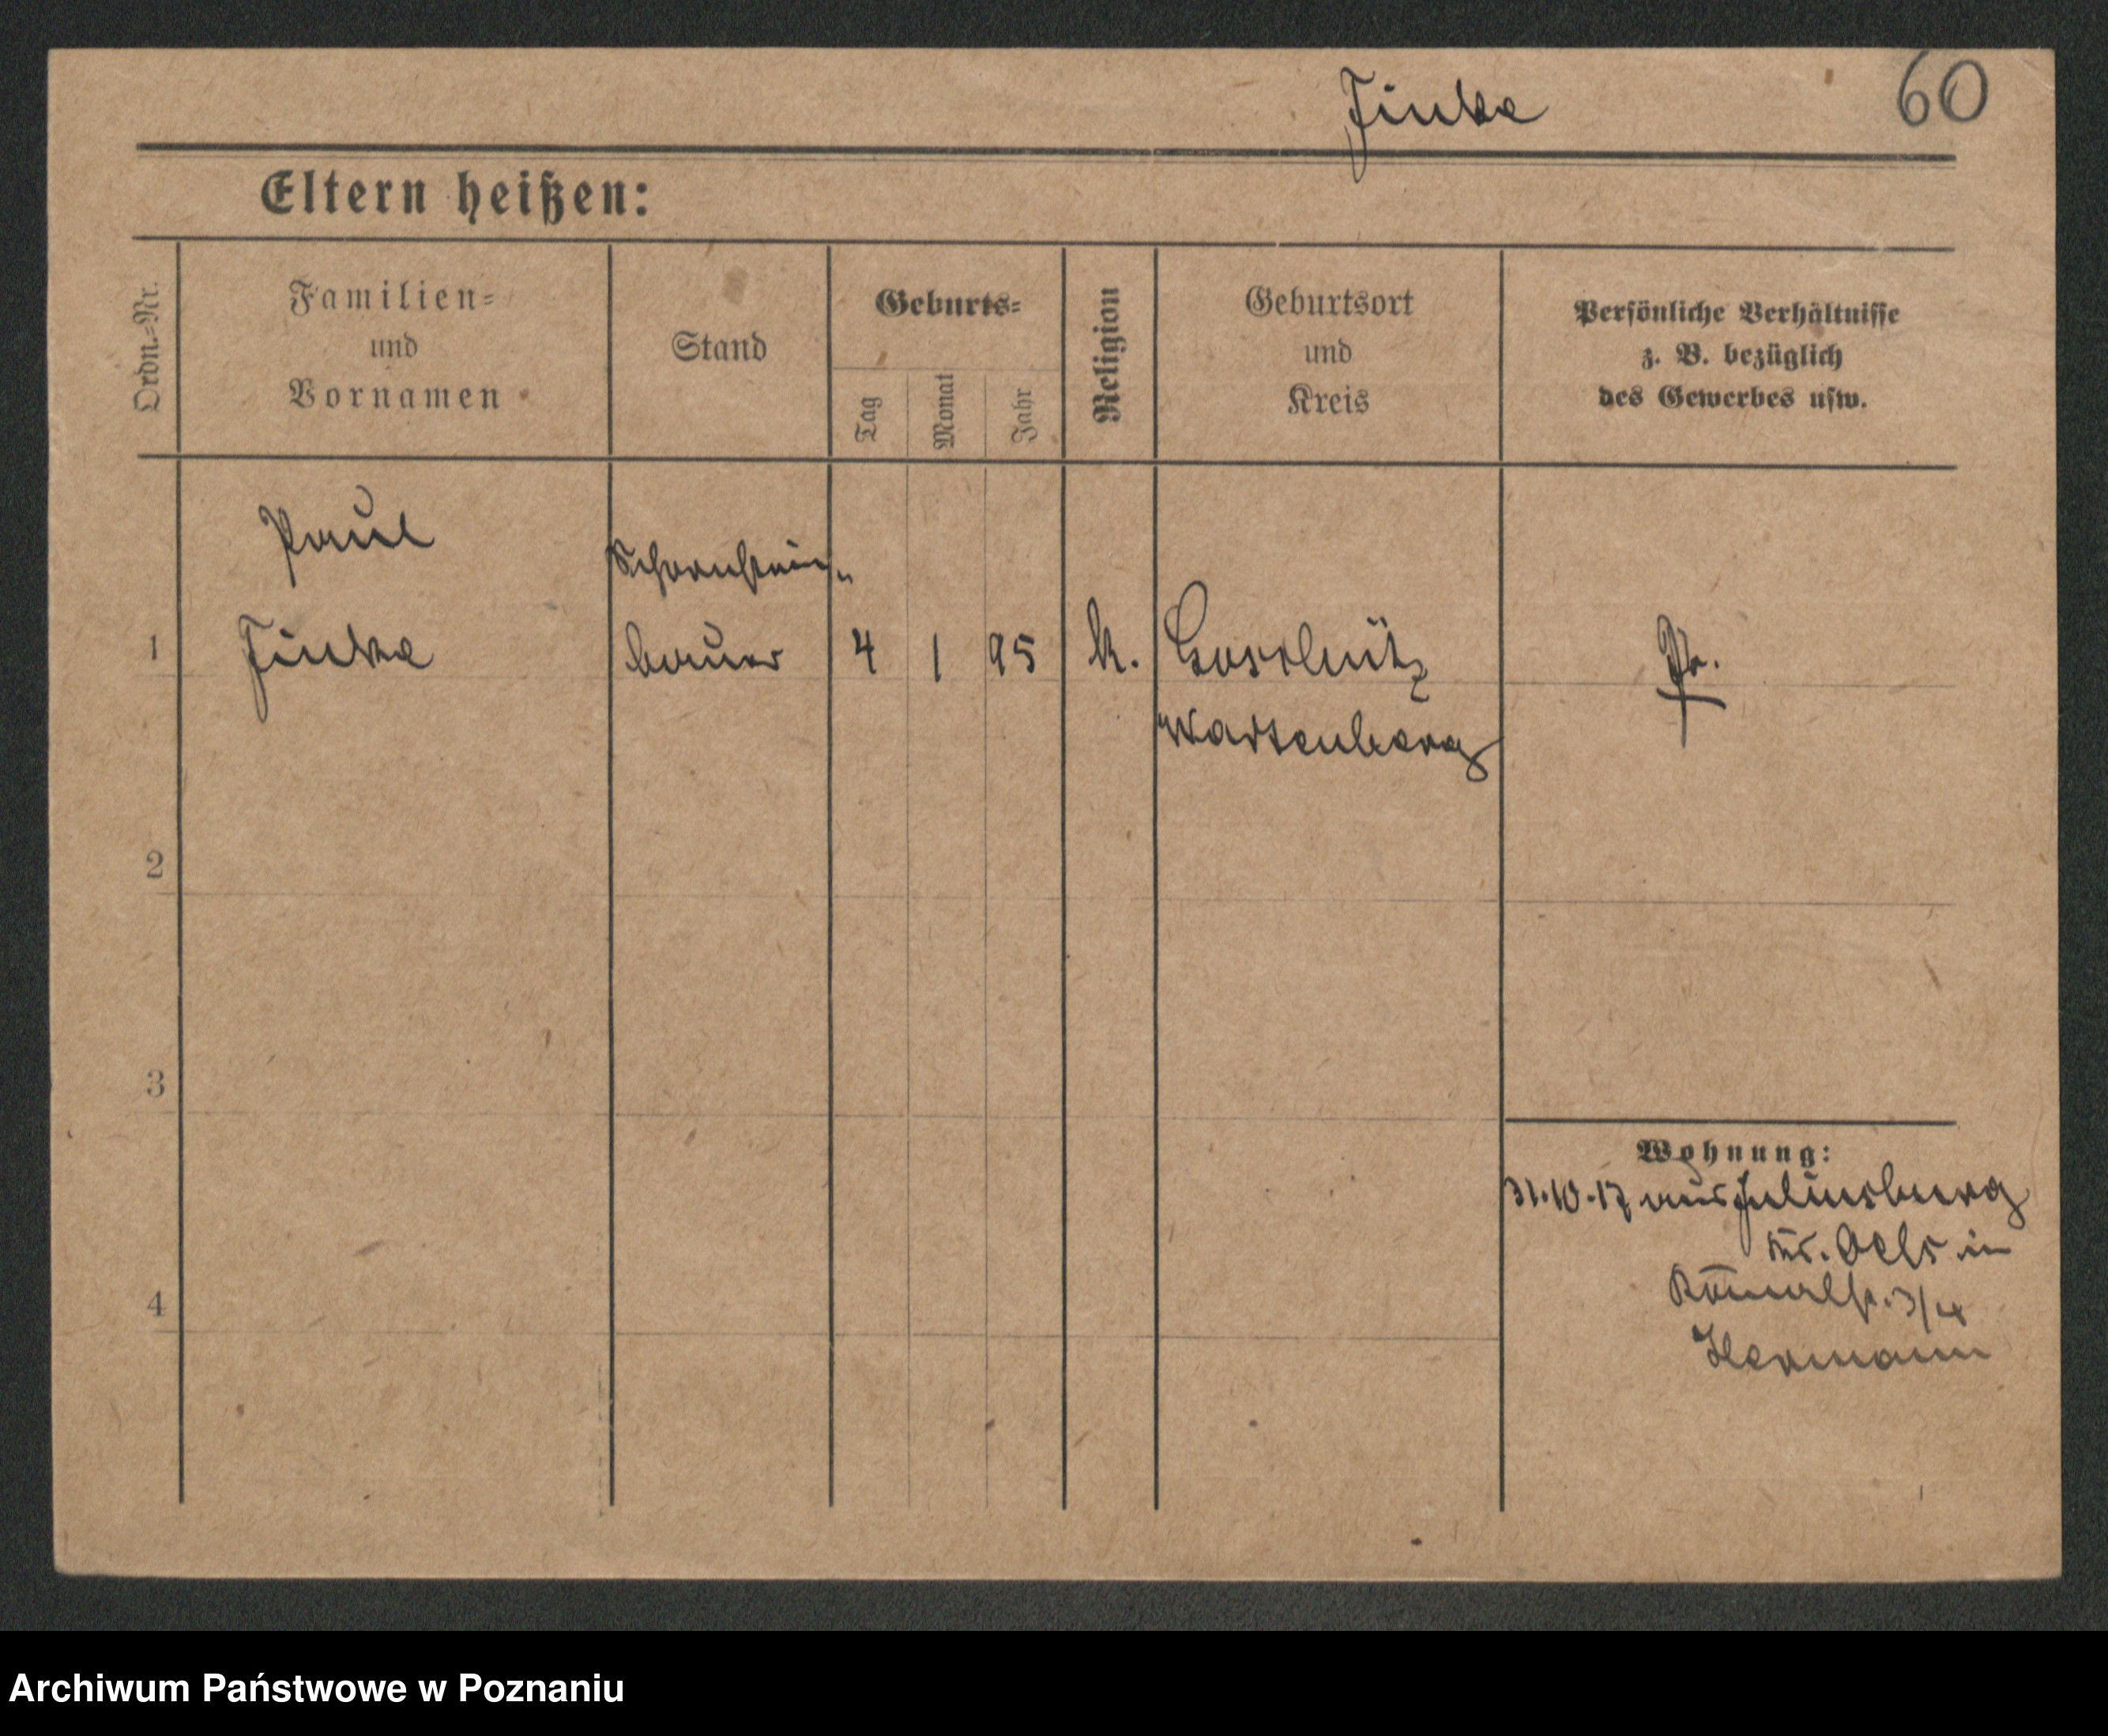 Jinke
60
Eltern heißen:
Ordn.-Nr.
Familien-
und
Vornamen
Stand
Geburts-
Tag
Monat
Jahr
Religion
Geburtsort
und
Kreis
Persönliche Verhältnisse
z. B. bezüglich
des Gewerbes usw.
Paul
Schornstein-
1 Jinke bauer 4 1 95 k. Pr.
Wartenberg
2
3
4
Wohnung:
31.10.17 aus Juliusburg
Kr. Oels in
3/4
Hermann
Archiwum Państwowe w Poznaniu